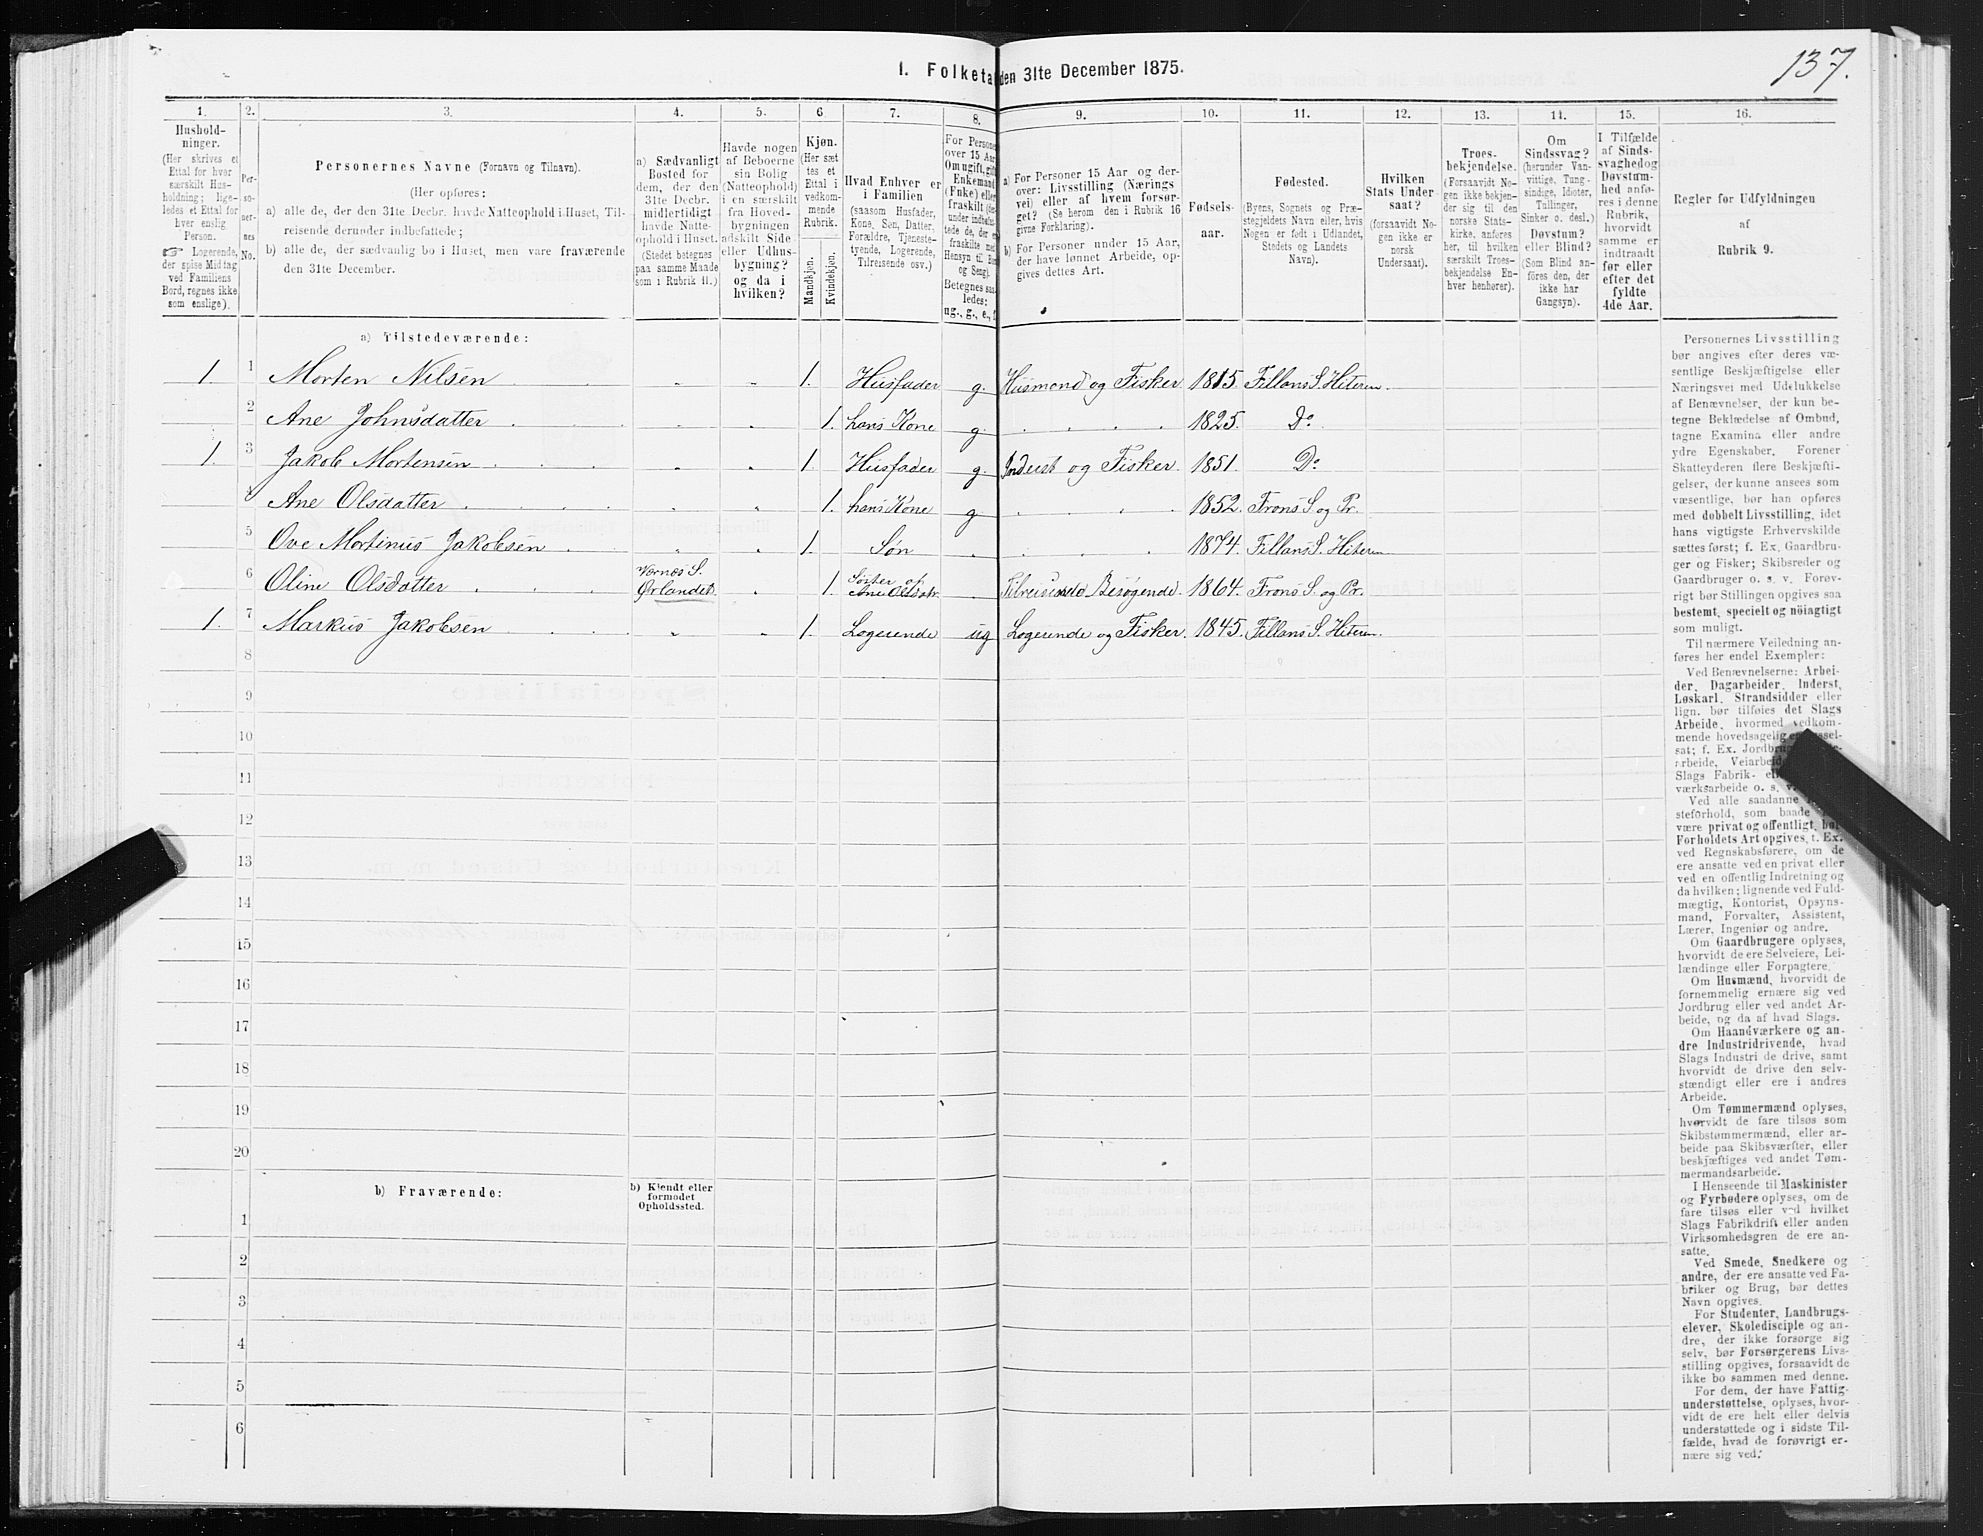 137.
1. Folketa den 31te December 1875.
1. 2. 3. 4. 5. 6 7. 8. 9. 10. 11. 12. 13. 14. 15. 16.
Hushold-
ninger.
(Her skrives et
Ettal for hver
særskilt Hus-
holdning; lige-
ledes et Ettal for
hver enslig
Person.
☞ Logerende,
der spise Middag
ved Familiens
Bord, regnes ikke
som enslige).
Per-
so-
ner-
nes
No.
Personernes Navne (Fornavn og Tilnavn).
(Her opføres:
a) alle de, der den 31te Decbr. havde Natteophold i Huset, Til-
reisende derunder indbefattede;
b) alle de, der sædvanlig bo i Huset, men vare fraværende
den 31te December.
a) Sædvanligt
Bosted for
dem, der den
31te Decbr.
midlertidigt
havde Natte-
ophold i Huset.
(Stedet betegnes
paa samme Maade
som i Rubrik 11.)
Havde nogen
af Beboerne
sin Bolig
(Natteophold)
i en særskilt
fra Hoved-
bygningen
adskilt Side-
eller Udhus-
bygning?
og da i
hvilken?
Kjøn.
(Her sæt-
tes et
Ettal i
vedkom-
mende
Rubrik.
Mandkjøn.
Kvindekjøn.
Hvad Enhver er
i Familien
(saasom Husfader,
Kone, Søn, Datter,
Forældre, Tjeneste-
tyende, Logerende,
Tilreisende osv.)
For Persone
over 15 Aar
Om ugift, gift
Enkemand
(Enke) eller
fraskilt (der-
under indbefat-
tede de, der er
fraskilte med
Hensyn til Bord
og Seng).
Betegnes saa-
ledes:
ug., g., e., f.
a) For Personer 15 Aar og der-
over: Livsstilling (Nærings
vei) eller af hvem forsør-
get? (Se herom den i Rubrik 16
givne Forklaring).
b) For Personer under 15 Aar,
der have lønnet Arbeide, op-
gives dettes Art.
Fødsels-
aar.
Fødested.
(Byens, Sognets og Præ-
stegjeldets Navn eller, hvis
Nogen er født i Udlandet,
Stedets og Landets
Navn).
Hvilken
Stats Under-
saat?
(forsaavidt No-
gen ikke er
norsk
Undersaat).
Troes-
bekjendelse.
(Forsaavidt No-
gen ikke bekjen-
der sig til den
norske Stats-
kirke, anføres
her, til hvilken
særskilt Troes-
bekjendelse En-
hver henhører).
Om
Sindssvag?
(herunder Van-
vittige, Tung-
sindige, Idioter,
Tullinger,
Sinker o. desl.)
Døvstum?
eller Blind?
(Som Blind an-
føres den, der
ikke har
Gangsyn).
I Tilfælde
af Sinds-
svaghed og
Døvstum-
hed anfø-
res i denne
Rubrik,
hvorvidt
samme er
indtraadt
før eller
efter det
fyldte
4de Aar.
Regler for Udfyldningen
af
Rubrik 9.
a) Tilstedeværende:
1. 1 Morten Nilsen 1. Husfader g. Husmand og Fisker 1815. Fillans S. Hiteren.
2 Ane Johnsdatter 1. hans Kone g. 1825. Do.
1. 3 Jakob Mortensen 1. Husfader g. Inderst og Fisker. 1851. Do
4 Ane Olsdatter 1. hans Kone g. 1852. Frøns S. og Pr.
5 Ove Mortinus Jakobsen 1. Søn 1874. Fillans S. Hiteren
6 Oline Olsdatter Værnes S. Ørlandet. 1. Søster af Ane Olsdatr. Tilreisende Besøgende. 1864. Frøns S. og Pr.
1. 7 Markus Jakobsen 1. Logerende ug Logerende og Fisker. 1845. Fillans S. Hiteren.
8
9
10
11
12
13
14
15
16
17
18
19
20
b) Fraværende:
b) Kjendt eller
formodet
Opholdssted.
1
2
3
4
5
6
Personernes Livsstilling
bør angives efter deres væ-
sentlige Beskjæftigelse eller
Næringsvei med Udelukkelse
af Benævnelser, der kun be-
tegne Beklædelse af Ombud,
tagne Examina eller andre
ydre Egenskaber. Forener
Skatteyderen flere Beskjæfti-
gelser, der kunne ansees som
væsentlige, bør han opføres
med dobbelt Livsstilling, idet
hans vigtigste Erhvervskilde
sættes først; f. Ex. Gaardbru-
ger og Fisker; Skibsreder og
Gaardbruger o. s. v. Forøv-
rigt bør Stillingen opgives saa
bestemt, specielt og nøiagtigt
som muligt.
Til nærmere Veiledning an-
føres her endel Exempler:
Ved Benævnelserne: Arbei-
der, Dagarbeider, Inderst,
Løskarl, Strandsidder eller
lign. bør tilføies det Slags
Arbeide, hvormed vedkom-
mende hovedsagelig er
sat; f. Ex. Jordbru
arbeide, Veiarbeid
Slags Fabrik-
værksarbeide o. s. v.
Ved alle saadanne
steforhold, som baade
være privat og offentligt, bør
Forholdets Art opgives, t. Ex.
ved Regnskabsførere, om de
ere ansatte ved en privat eller
ved en offentlig Indretning og
da hvilken; lignende ved Fuld-
mægtig, Kontorist, Opsyns-
mand, Forvalter, Assistent,
Lærer, Ingeniør og andre.
Om Gaardbrugere oplyses,
hvorvidt de ere Selveiere, Lei-
lændinge eller Forpagtere.
Om Husmænd, hvorvidt de
fornemmelig ernære sig ved
Jordbrug eller ved andet Ar-
beide, og da af hvad Slags.
Om Haandværkere og an-
dre Industridrivende, hvad
Slags Industri de drive, samt
hvorvidt de drive den selv-
stændigt eller ere i andres
Arbeide.
Om Tømmermænd oplyses,
hvorvidt de fare tilsøs som
Skibstømmermænd, eller ar-
beide paa Skibsværfter, eller
beskjæftiges ved andet Tøm-
mermandsarbeide.
I Henseende til Maskinister
og Fyrbødere oplyses, om de
fare tilsøs eller ved hvilket
Slags Fabrikdrift eller anden
Virksomhedsgren de ere an-
satte.
Ved Smede, Snedkere og
andre, der ere ansatte ved Fa-
briker og Brug, bør dettes
Navn opgives.
For Studenter, Landbrugs-
elever, Skoledisciple og an-
dre, der ikke forsørge sig
selv, bør Forsørgerens Livs-
stilling opgives, forsaavidt de
ikke bo sammen med denne.
For dem, der have Fattig-
understøttelse, oplyses, hvor-
vidt de ere helt eller delvis
understøttede og i sidste Til-
fælde, hvad de forøvrigt er-
nære sig ved.